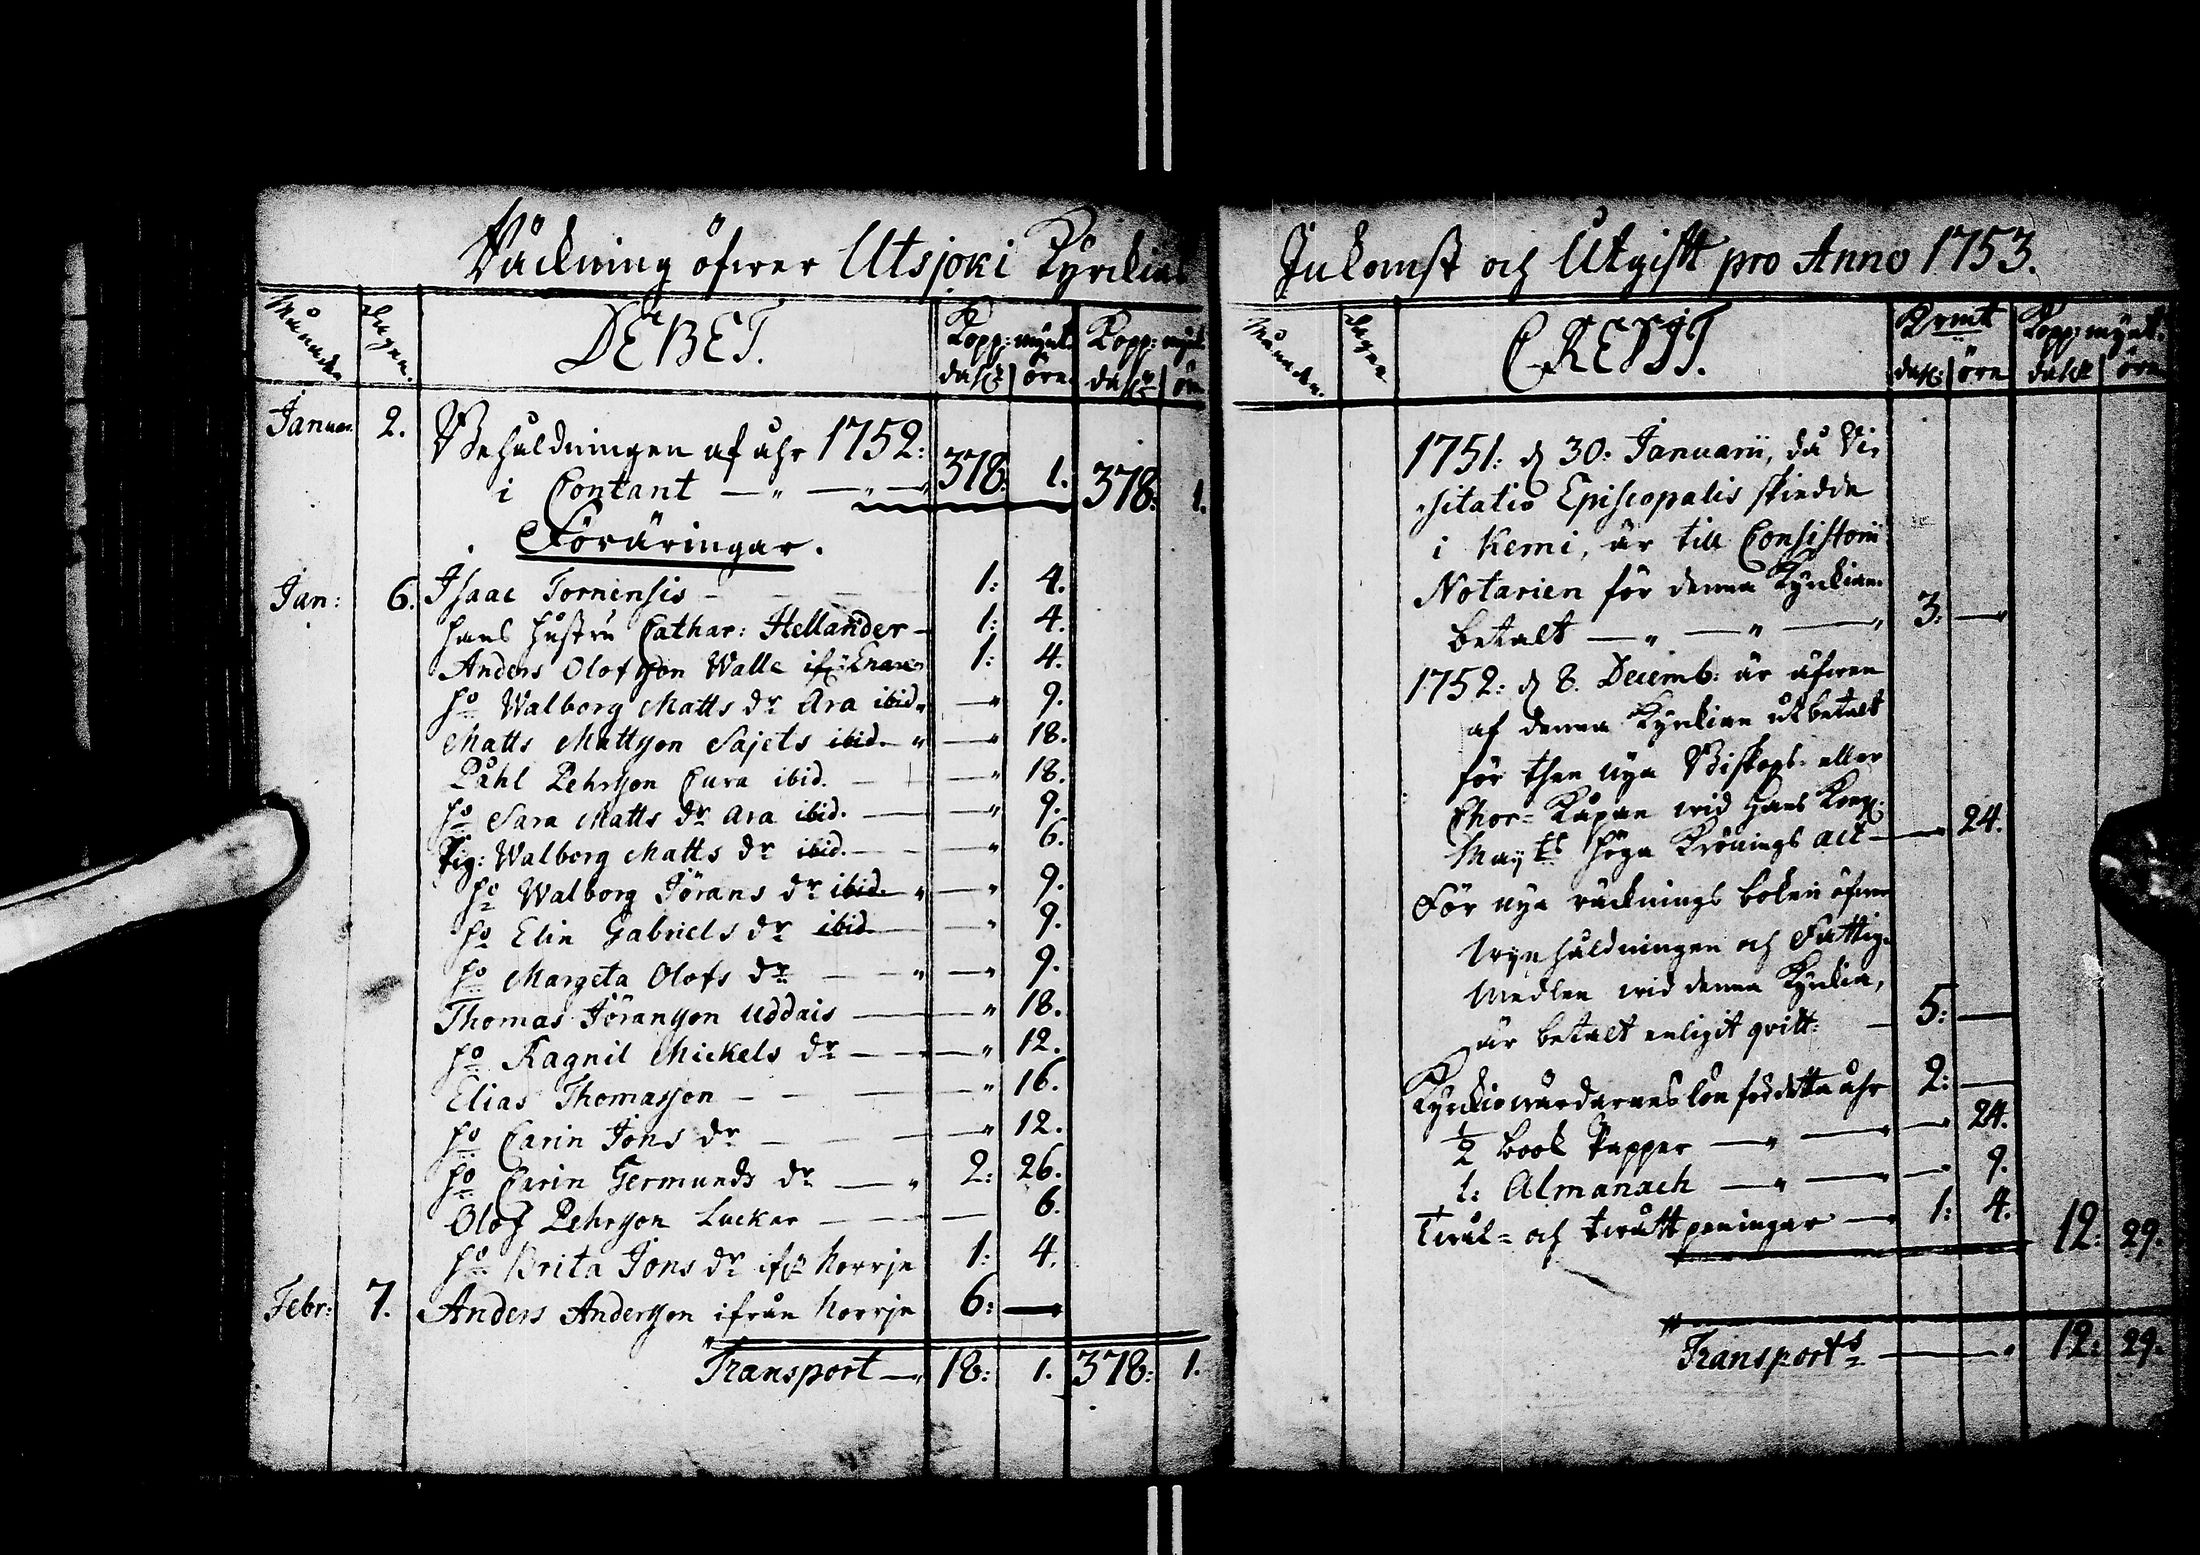 Räckning öfwer Utsjoki Kyrckias
Månader. Dagar. DEBET. Kopp: mynt. Kopp: mynt
dalr öre. dalr öre
Januar. 2. Behåldningen af åhr 1752:
i Contant — " — " — " 378: 1. 378: 1.
Föräringar.
Jan: 6. Isaac Tornensis — 1: 4.
Hans Hustru Cathar: Hellander — 1: 4.
Anders Olofsson Walle ifr: Enare 1: 4.
ho Walborg Matts dr Ara ibid. — " 9.
Matts Mattsson Sajets ibid. — " 18.
Påhl Pehrsson Cura ibid. — " 18.
ho Sara Matts dr Ara ibid. — " 9.
Pig: Walborg Matts dr ibid. — " 6.
ho Walborg Jörans dr ibid. — " 9.
ho Elin Gabriels dr ibid. — " 9.
ho Margeta Olofs dr — " 9.
Thomas Göransson Uddais — " 18.
ho Ragnil Mickels dr — " 12.
Elias Thomasson — " 16.
ho Carin Jons dr — " 12.
ho Carin Germunds dr — " 2: 26.
Olof Pehrsson Luckar — 6.
ho Brita Jons dr ifr: Norrje 1: 4.
Febr: 7. Anders Andersson ifrån Norrje 6: —
Transport — 18: 1. 378: 1.
Inkomst och Utgifft pro Anno 1753.
Månader. Dagar CREDIT. Kmt Kopp: mynt.
dalr: öre dalr öre
1751: d 30: Januarii, då Vi-
sitatio Episcopalis skiedde
i Kemi, är till Consistorii
Notarien för denna Kyrckian
betalt — " — " — " 3: —
1752: d 8. Decemb: är äfwen
af denna Kyrckian utbetalt
för then nya Biskops- eller
Chor-Kåpan wid Hans Kongl:
Mayts höga Krönings act — 24.
För nya räcknings boken öfwer
Uppehåldningen och Fattig-
Medlen wid denna Kyrckia,
är betalt enligit qvitt: — 5: —
Kyrckiowärdarnes lön för detta åhr 2: —
½ book Papper — " — " — 24.
1: Almanach — " — " — 9.
Twål- och twättpeningar — 1: 4. 12: 29.
Transports — " 12: 29.